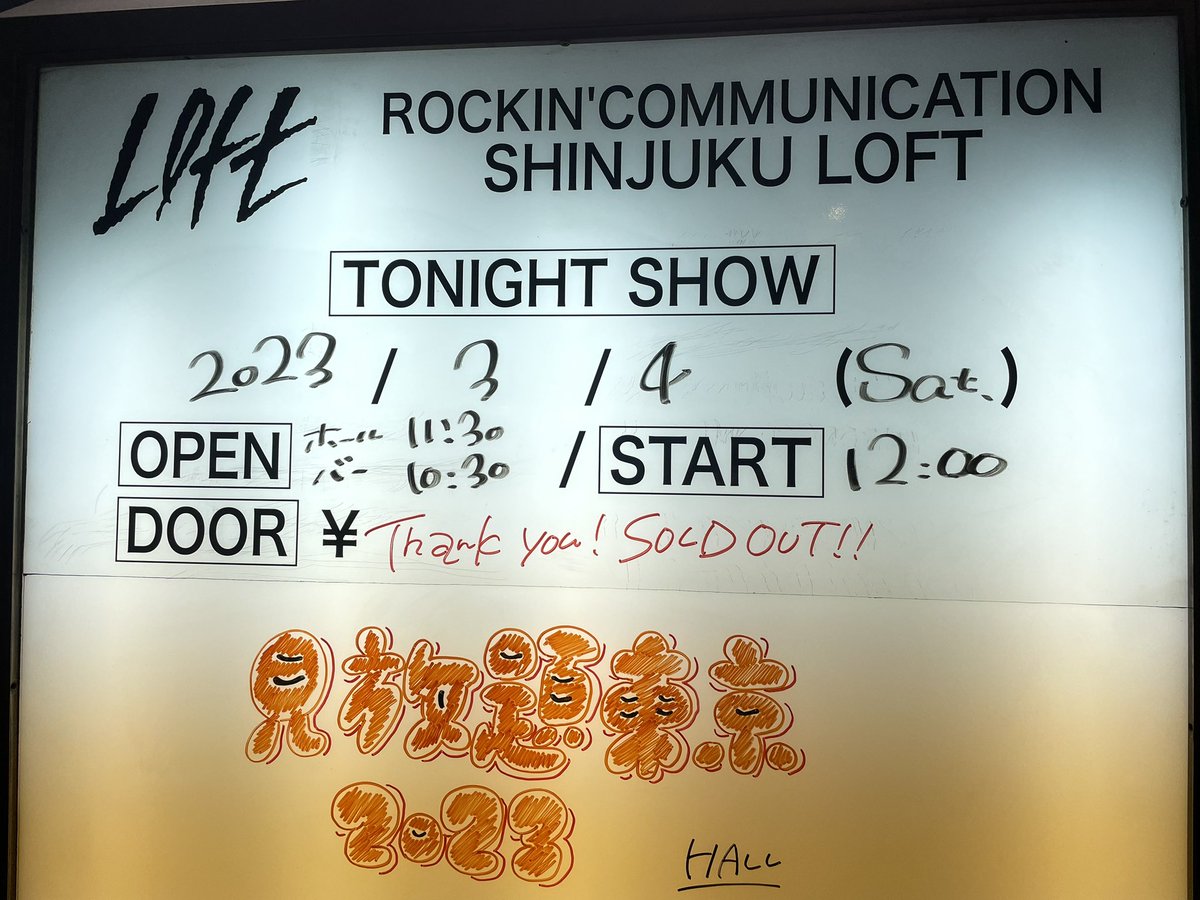 LOFT
ROCKIN'COMMUNICATION
SHINJUKU LOFT
TONIGHT SHOW
2023 / 3 / 4 (Sat.)
OPEN ホール 11:30 / START 12:00
バー 10:30
DOOR ¥ Thank you! SOLD OUT!!
見放題東京
2023
HALL